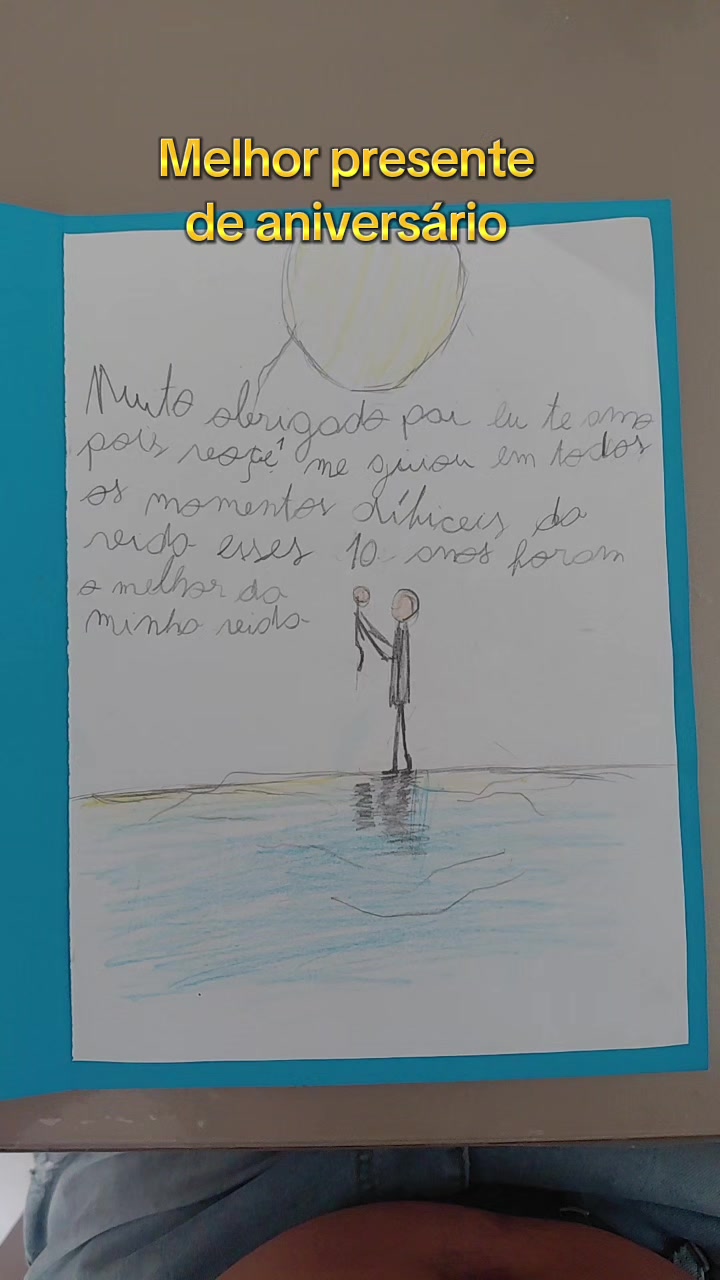 Melhor presente
de aniversário
Muito obrigado pai eu te amo
pois você me guiou em todos
os momentos difíceis da
vida esses 10 anos foram
o melhor da
minha vida